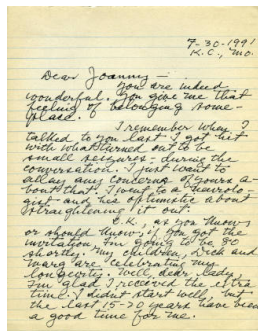 7-30-1991
K.C., Mo.
Dear Joanny —
You are indeed
wonderful. You give me that
feeling of belonging some-
place.
I remember when I
talked to you last I got hit
with what turned out to be
small seizures - during the
conversation. I just want to
allay any concerns of yours a-
bout that. I went to a neurolo-
gist and he's optimistic about
straightening it out.
O.K., as you know
or should know if you got the
invitation, I'm going to be 80
shortly. My children, Dick and
Marg are celebrating my
longevity. Well, dear lady,
I'm glad I received the extra
time. I didn't start well, but
the last 15-20 years have been
a good time for me.